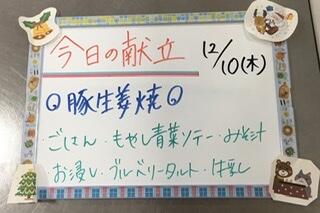 今日の献立 12/10(木)
豚生姜焼
・ごはん・もやし青菜ソテー・みそ汁
・お浸し・ブルベリータルト・牛乳